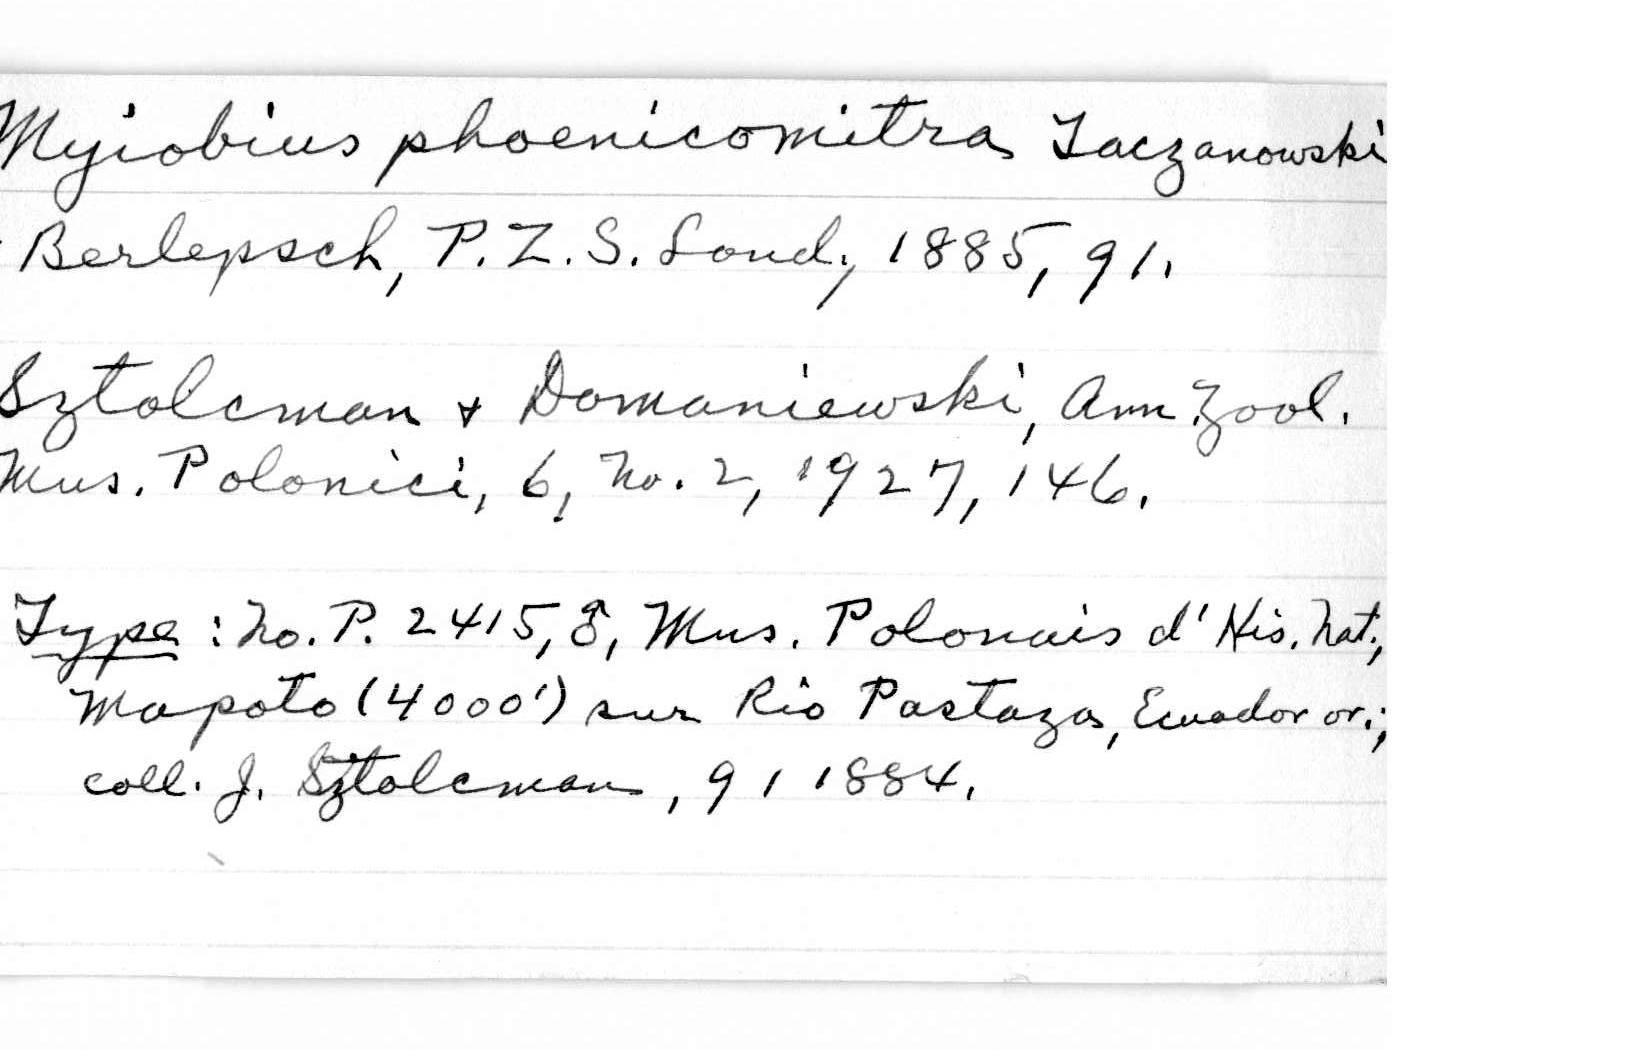 Myiobius phoenicomitra Taczanowski
Berlepsch, P.Z.S. Lond., 1885, 91.
Sztolcman & Domaniewski, Ann. Zool.
Mus. Polonici, 6, No. 2, 1927, 146.
Type: No. P. 2415, ♂, Mus. Polonais d'His. Nat.,
Mapoto (4000') sur Rio Pastaza, Ecuador or.;
coll. J. Sztolcman, 9 1 1884.